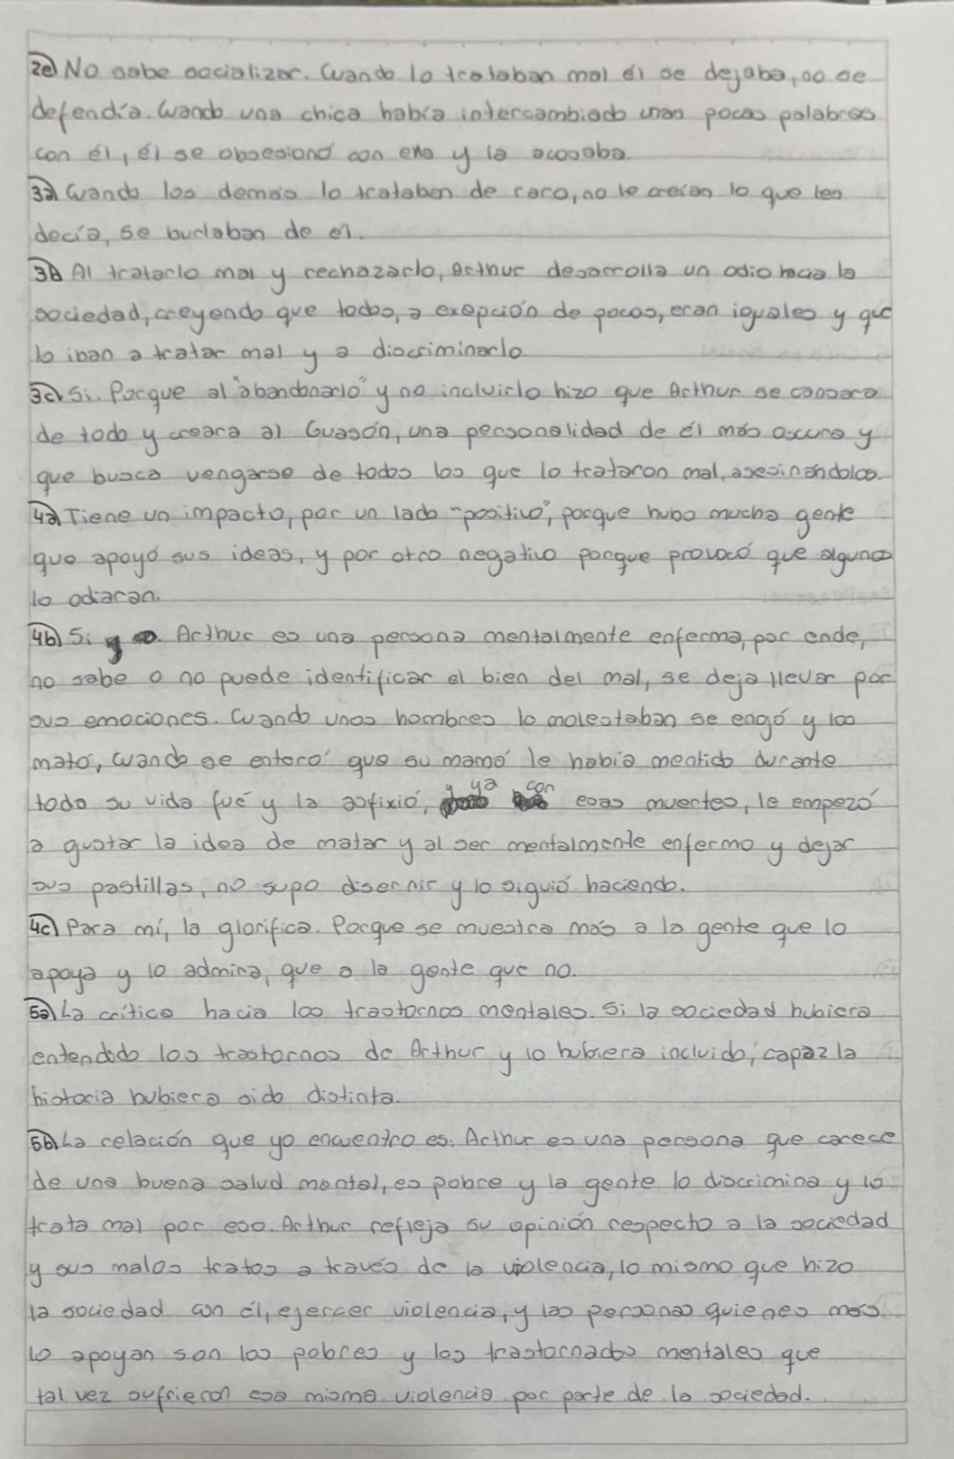 2c) No sabe socializar. Cuando lo trataban mal él se dejaba, no se
defendía. Cuando una chica había intercambiado unas pocas palabras
con él, él se obsesionó con ella y la acosaba.
3a) Cuando los demás lo trataban de raro, no le creían lo que les
decía, se burlaban de él.
3b) Al tratarlo mal y rechazarlo, Arthur desarrolla un odio hacia la
sociedad, creyendo que todos, a exepción de pocos, eran iguales y que
lo iban a tratar mal y a discriminarlo.
3c) Si. Porque al "abandonarlo" y no incluirlo hizo que Arthur se cansara
de todo y creara al Guasón, una personalidad de él más oscura y
que busca vengarse de todos los que lo trataron mal, asesinandolos.
4a) Tiene un impacto, por un lado "positivo", porque hubo mucha gente
que apoyó sus ideas, y por otro negativo porque provocó que algunos
lo odiaran.
4b) Si. Arthur es una persona mentalmente enferma, por ende,
no sabe o no puede identificar el bien del mal, se deja llevar por
sus emociones. Cuando unos hombres lo molestaban se engó y los
mató, cuando se enteró que su mamá le había mentido durante
toda su vida fué y la asfixió, ya con esas muertes, le empezó
a gustar la idea de matar y al ser mentalmente enfermo y dejar
sus pastillas, no supo disernir y lo siguió haciendo.
4c) Para mí, la glorifica. Porque se muestra más a la gente que lo
apoya y lo admira, que a la gente que no.
5a) La crítica hacia los trastornos mentales. Si la sociedad hubiera
entendido los trastornos de Arthur y lo hubiera incluido, capaz la
historia hubiera sido distinta.
5b) La relación que yo encuentro es: Arthur es una persona que carece
de una buena salud mental, es pobre y la gente lo discrimina y lo
trata mal por eso. Arthur refleja su opinión respecto a la sociedad
y sus malos tratos a través de la violencia, lo mismo que hizo
la sociedad con él, ejercer violencia, y las personas quienes más
lo apoyan son los pobres y los trastornados mentales que
tal vez sufrieron esa misma violencia por parte de la sociedad.